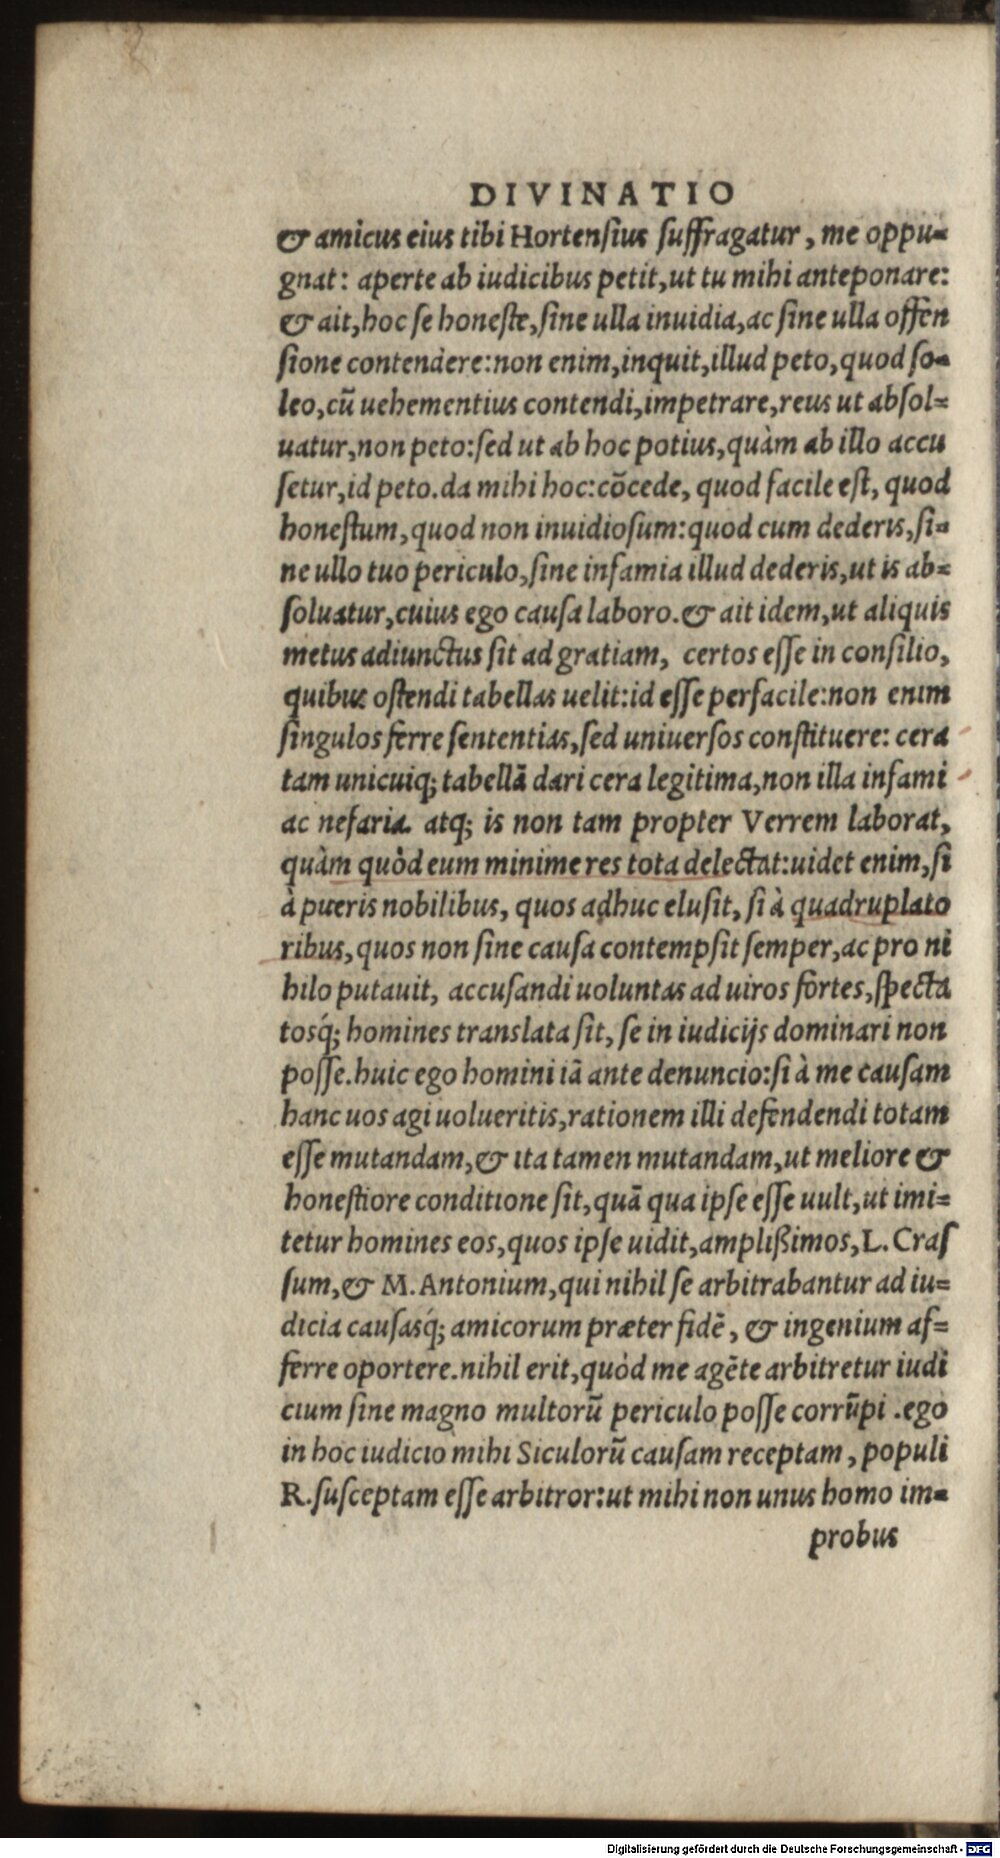 DIVINATIO
& amicus eius tibi Hortensius suffragatur, me oppu-
gnat: aperte ab iudicibus petit, ut tu mihi anteponare:
& ait, hoc se honeste, sine ulla inuidia, ac sine ulla offen
sione contendere: non enim, inquit, illud peto, quod so-
leo, cũ uehementius contendi, impetrare, reus ut absol-
uatur, non peto: sed ut ab hoc potius, quàm ab illo accu
setur, id peto. da mihi hoc: cõcede, quod facile est, quod
honestum, quod non inuidiosum: quod cum dederis, si-
ne ullo tuo periculo, sine infamia illud dederis, ut is ab-
soluatur, cuius ego causa laboro. & ait idem, ut aliquis
metus adiunctus sit ad gratiam, certos esse in consilio,
quibus ostendi tabellas uelit: id esse perfacile: non enim
singulos ferre sententias, sed uniuersos constituere: cera
tam unicuiq; tabellã dari cera legitima, non illa infami
ac nefaria. atq; is non tam propter Verrem laborat,
quàm quòd eum minime res tota delectat: uidet enim, si
à pueris nobilibus, quos adhuc elusit, si à quadruplato
ribus, quos non sine causa contempsit semper, ac pro ni
hilo putauit, accusandi uoluntas ad uiros fortes, specta
tosq́; homines translata sit, se in iudicijs dominari non
posse. huic ego homini iã ante denuncio: si à me causam
hanc uos agi uolueritis, rationem illi defendendi totam
esse mutandam, & ita tamen mutandam, ut meliore &
honestiore conditione sit, quã qua ipse esse uult, ut imi-
tetur homines eos, quos ipse uidit, amplißimos, L. Cras
sum, & M. Antonium, qui nihil se arbitrabantur ad iu-
dicia causasq́; amicorum præter fidẽ, & ingenium af-
ferre oportere. nihil erit, quòd me agẽte arbitretur iudi
cium sine magno multorũ periculo posse corrũpi. ego
in hoc iudicio mihi Siculorũ causam receptam, populi
R. susceptam esse arbitror: ut mihi non unus homo im-
probus
Digitalisierung gefördert durch die Deutsche Forschungsgemeinschaft - DFG